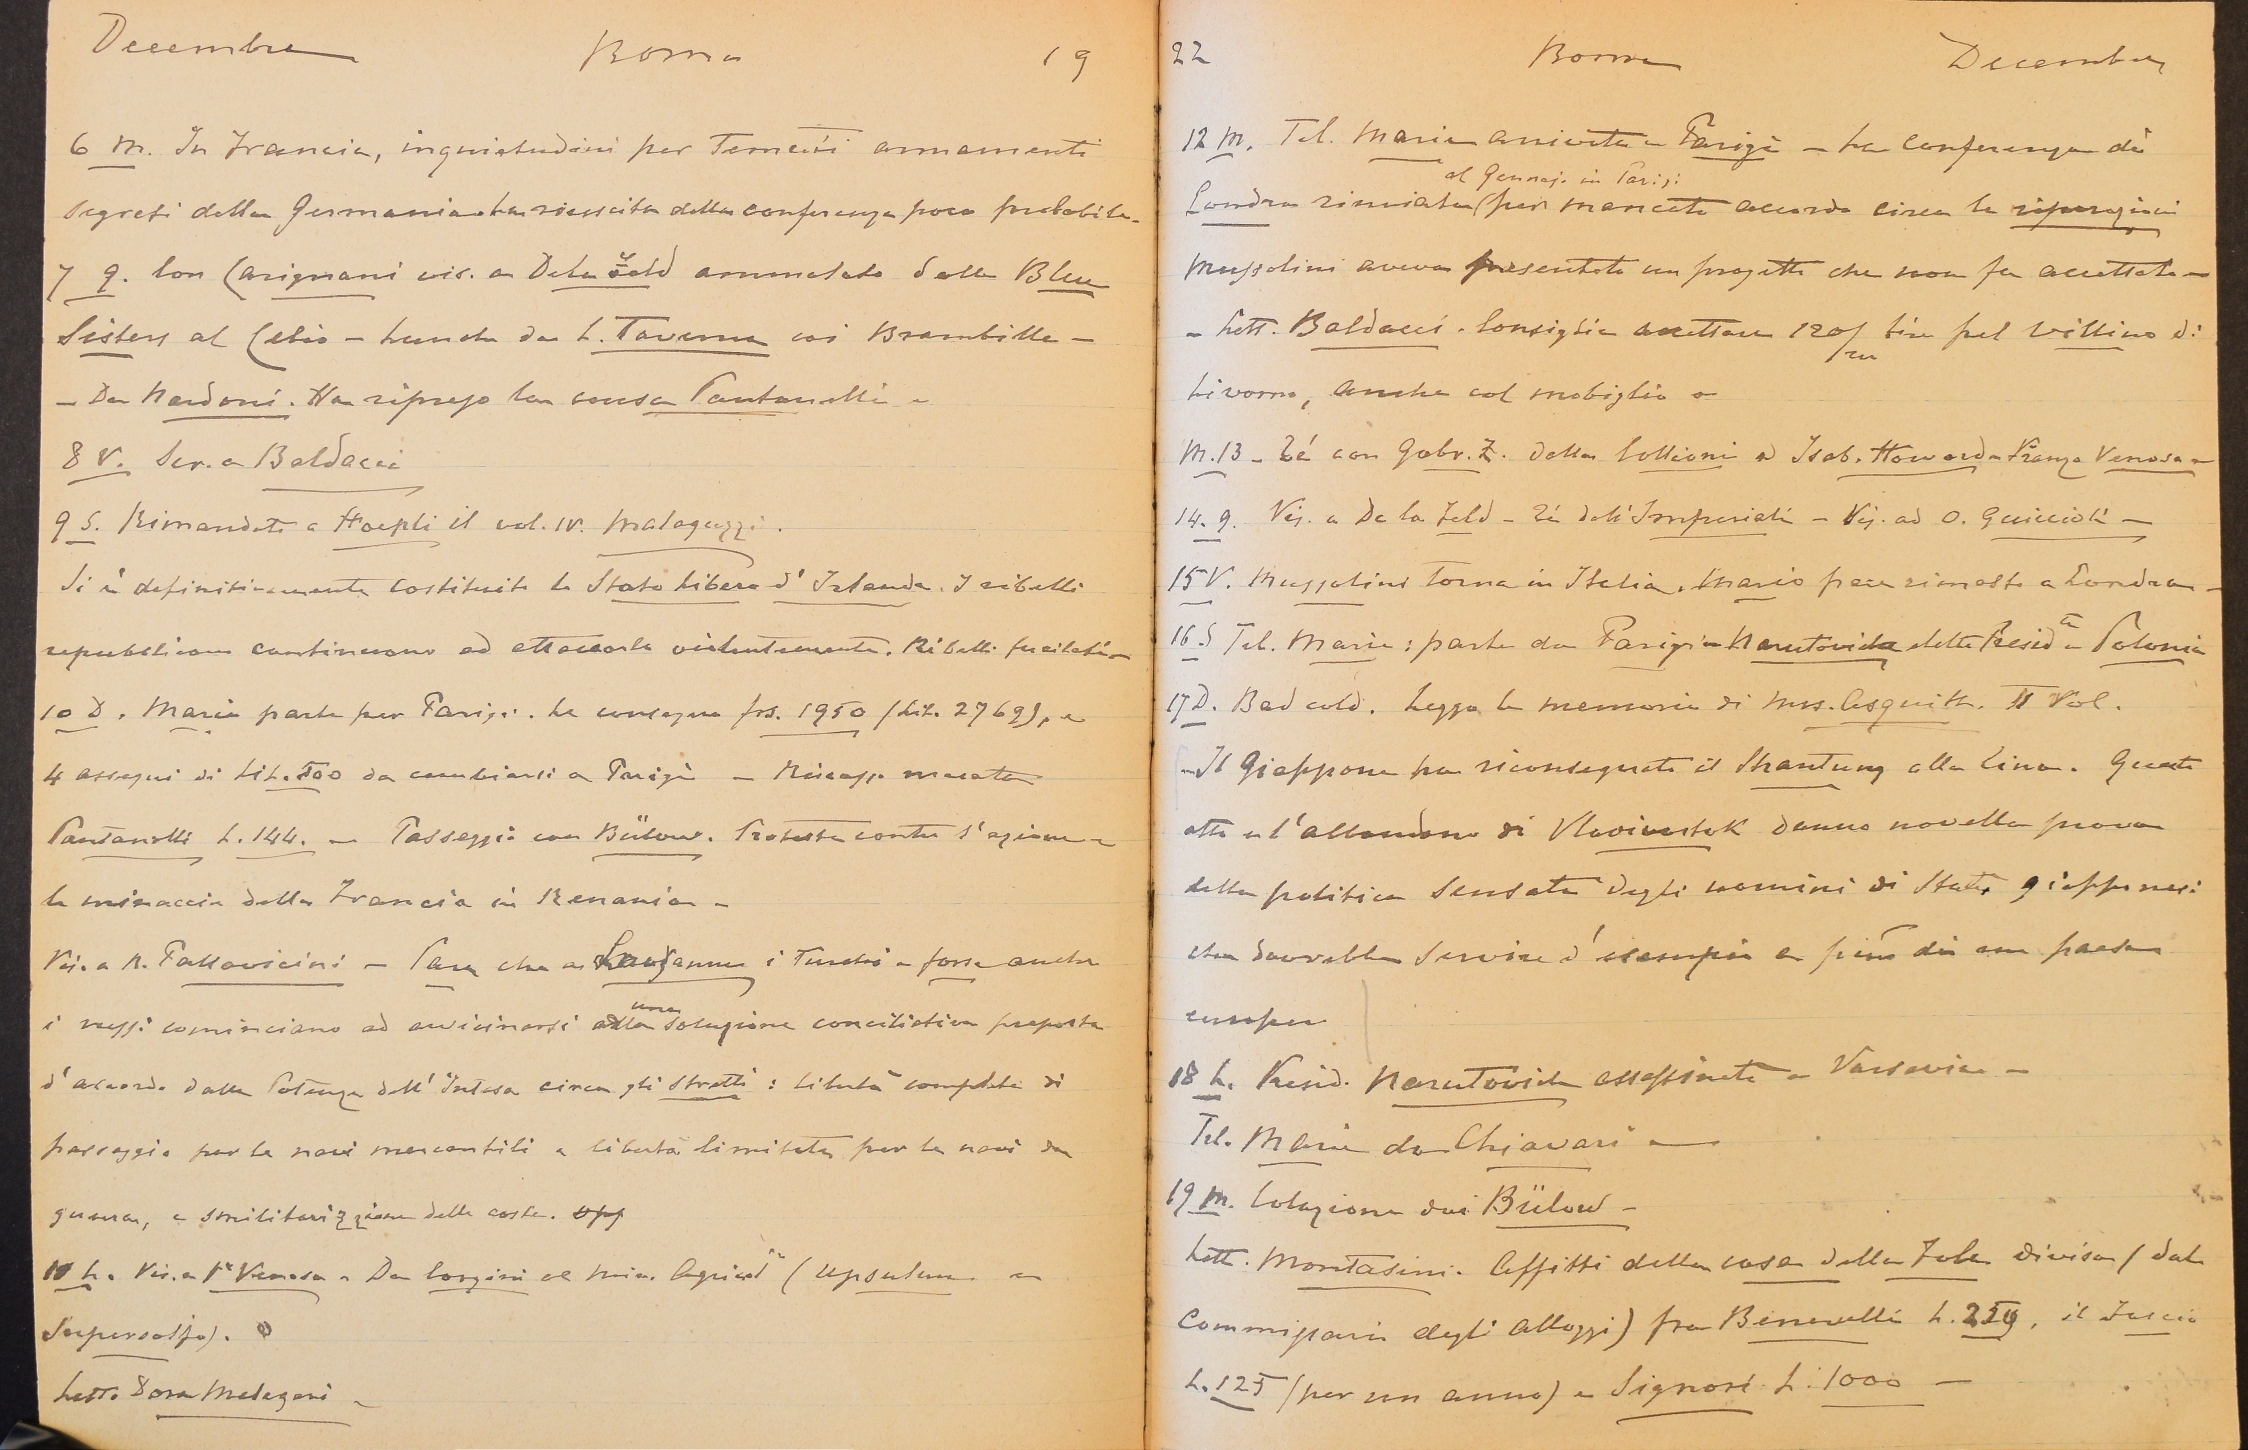 Decembre Roma 19
6 M. In Francia, inquietudini per temuti armamenti
segreti della Germania. La riescita della conferenza poco probabile.
7 g. Con Carignani vis. a De la Feld ammalato dalle Blue
Sisters al Celio – Lunch da L. Taverna coi Brambilla –
– Da Nardoni. Ha ripreso la causa Pantanelli –
8 V. Scr. a Baldacci
9 S. Rimandato a Hoepli il vol. IV. Malaguzzi.
Si è definitivamente costituito lo Stato Libero d'Irlanda. I ribelli
repubblicani continuano ad attaccarlo violentemente. Ribelli fucilati –
10 D. Maria parte per Parigi. Le consegno frs. 1950 (Lit. 2769), e
4 assegni di Lit. 500 da cambiarsi a Parigi –
Pantanelli L. 144. – Passeggio con Bülow. Protesta contro l'azione e
la minaccia della Francia in Renania –
Vis. a N. Pallavicini – Pare che a Lausanne i Turchi e forse anche
i russi cominciano ad avvicinarsi alla una soluzione conciliativa proposta
d'accordo dalle Potenze dell'Intesa circa gli Stretti: libertà completa di
passaggio per le navi mercantili e libertà limitata per le navi da
guerra, e smilitarizzazione delle coste.
11 L. Vis. a Pr Venosa – Da Corgini al Min. Agricolra (Upsulum e
Supersolfo).
Lett. Dora Melegari –
22 Roma Decembre
12 M. Tel. Maria arrivata a Parigi – La Conferenza di
al Gennajo in Parigi
Londra rinviata (per mancato accordo circa le riparazioni
Mussolini aveva presentato un progetto che non fu accettato –
– Lett. Baldacci. Consiglia accettare 120/m lire pel villino di
Livorno, anche col mobiglio –
M. 13 – Té con Gabr. Z. dalla Collioni e Isab. Howard – Franza Venosa –
14. g. Vis. a De la Feld – Té dall'Imperiali – Vis. ad O. Guiccioli –
15 V. Mussolini torna in Italia. Mario pare rimasto a Londra –
16. S Tel. Maria: parte da Parigi – Narutovich eletto Presidte a Polonia
17 D. Bad cold. Leggo le memorie di Mrs. Asquith. II Vol.
– Il Giappone ha riconsegnato il Shantung alla Cina. Questo
atto e l'abbandono di Vladivostok danno novella prova
della politica sensata degli uomini di Stato giapponesi
che dovrebbe servire d'esempio a più di un paese
europeo
18 L. Presid. Narutovich assassinato a Varsavia –
Tel. Maria da Chiavari –
19 M. Colazione dai Bülow –
Lett. Montasini. Affitti della casa della Fola divisa (dal
Commissario degli alloggi) fra Benevelli L. 250, il Fascio
L. 125 (per un anno) e Signori L. 1000 –